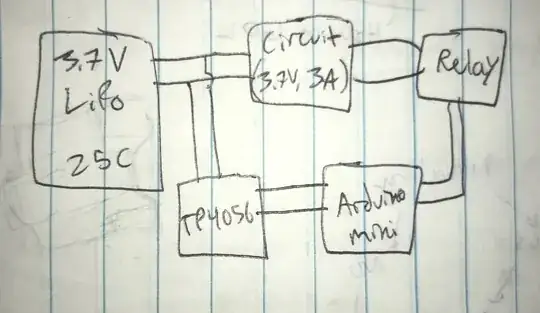 3.7V
Lipo
25C
Circuit
(3.7V, 3A)
Relay
TP4056
Arduino
mini